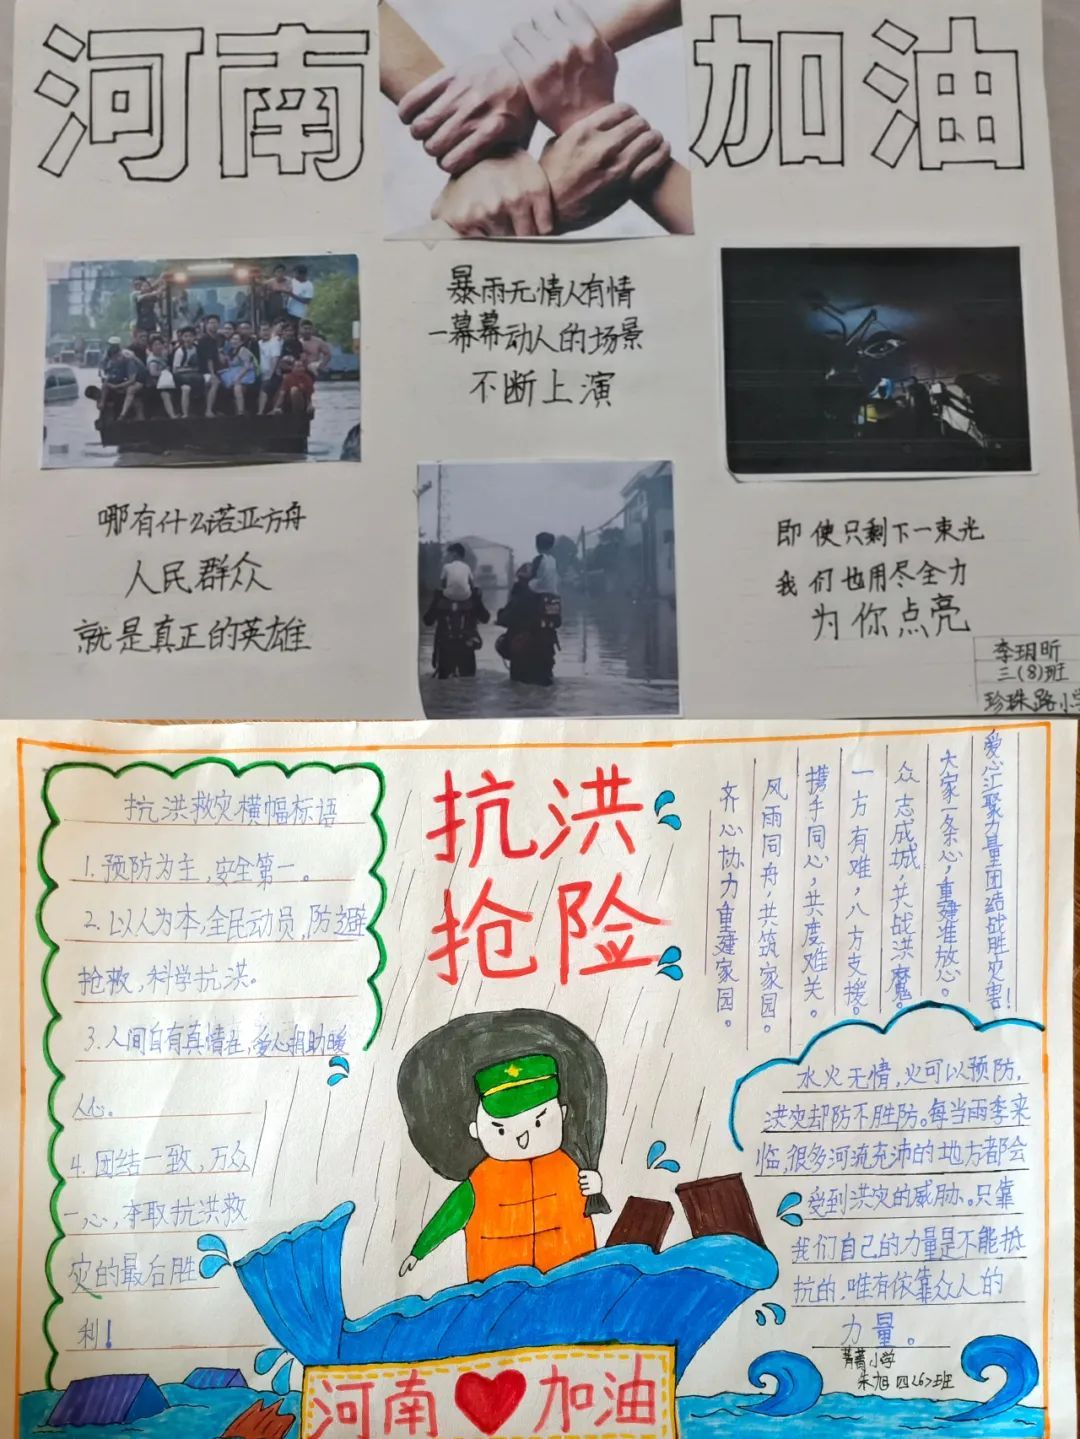 河南 加油
暴雨无情人有情
一幕幕动人的场景
不断上演
哪有什么诺亚方舟
人民群众
就是真正的英雄
即使只剩下一束光
我们也用尽全力
为你点亮
李玥昕
三(8)班
珍珠路小学
抗洪
抢险
抗洪救灾横幅标语
1.预防为主,安全第一。
2.以人为本,全民动员,防避
抢救,科学抗洪。
3.人间自有真情在,爱心捐助暖
人心。
4.团结一致,万众
一心,夺取抗洪救
灾的最后胜
利!
爱心汇聚力量团结战胜灾害!
大家一条心,重建准放心。
众志成城,共战洪魔。
一方有难,八方支援。
携手同心,共度难关。
风雨同舟,共筑家园。
齐心协力重建家园。
水火无情,火可以预防,
洪灾却防不胜防。每当雨季来
临,很多河流充沛的地方都会
受到洪灾的威胁。只靠
我们自己的力量是不能抵
抗的,唯有依靠众人的
力量。
菁菁小学
朱旭 四<6>班
河南 加油